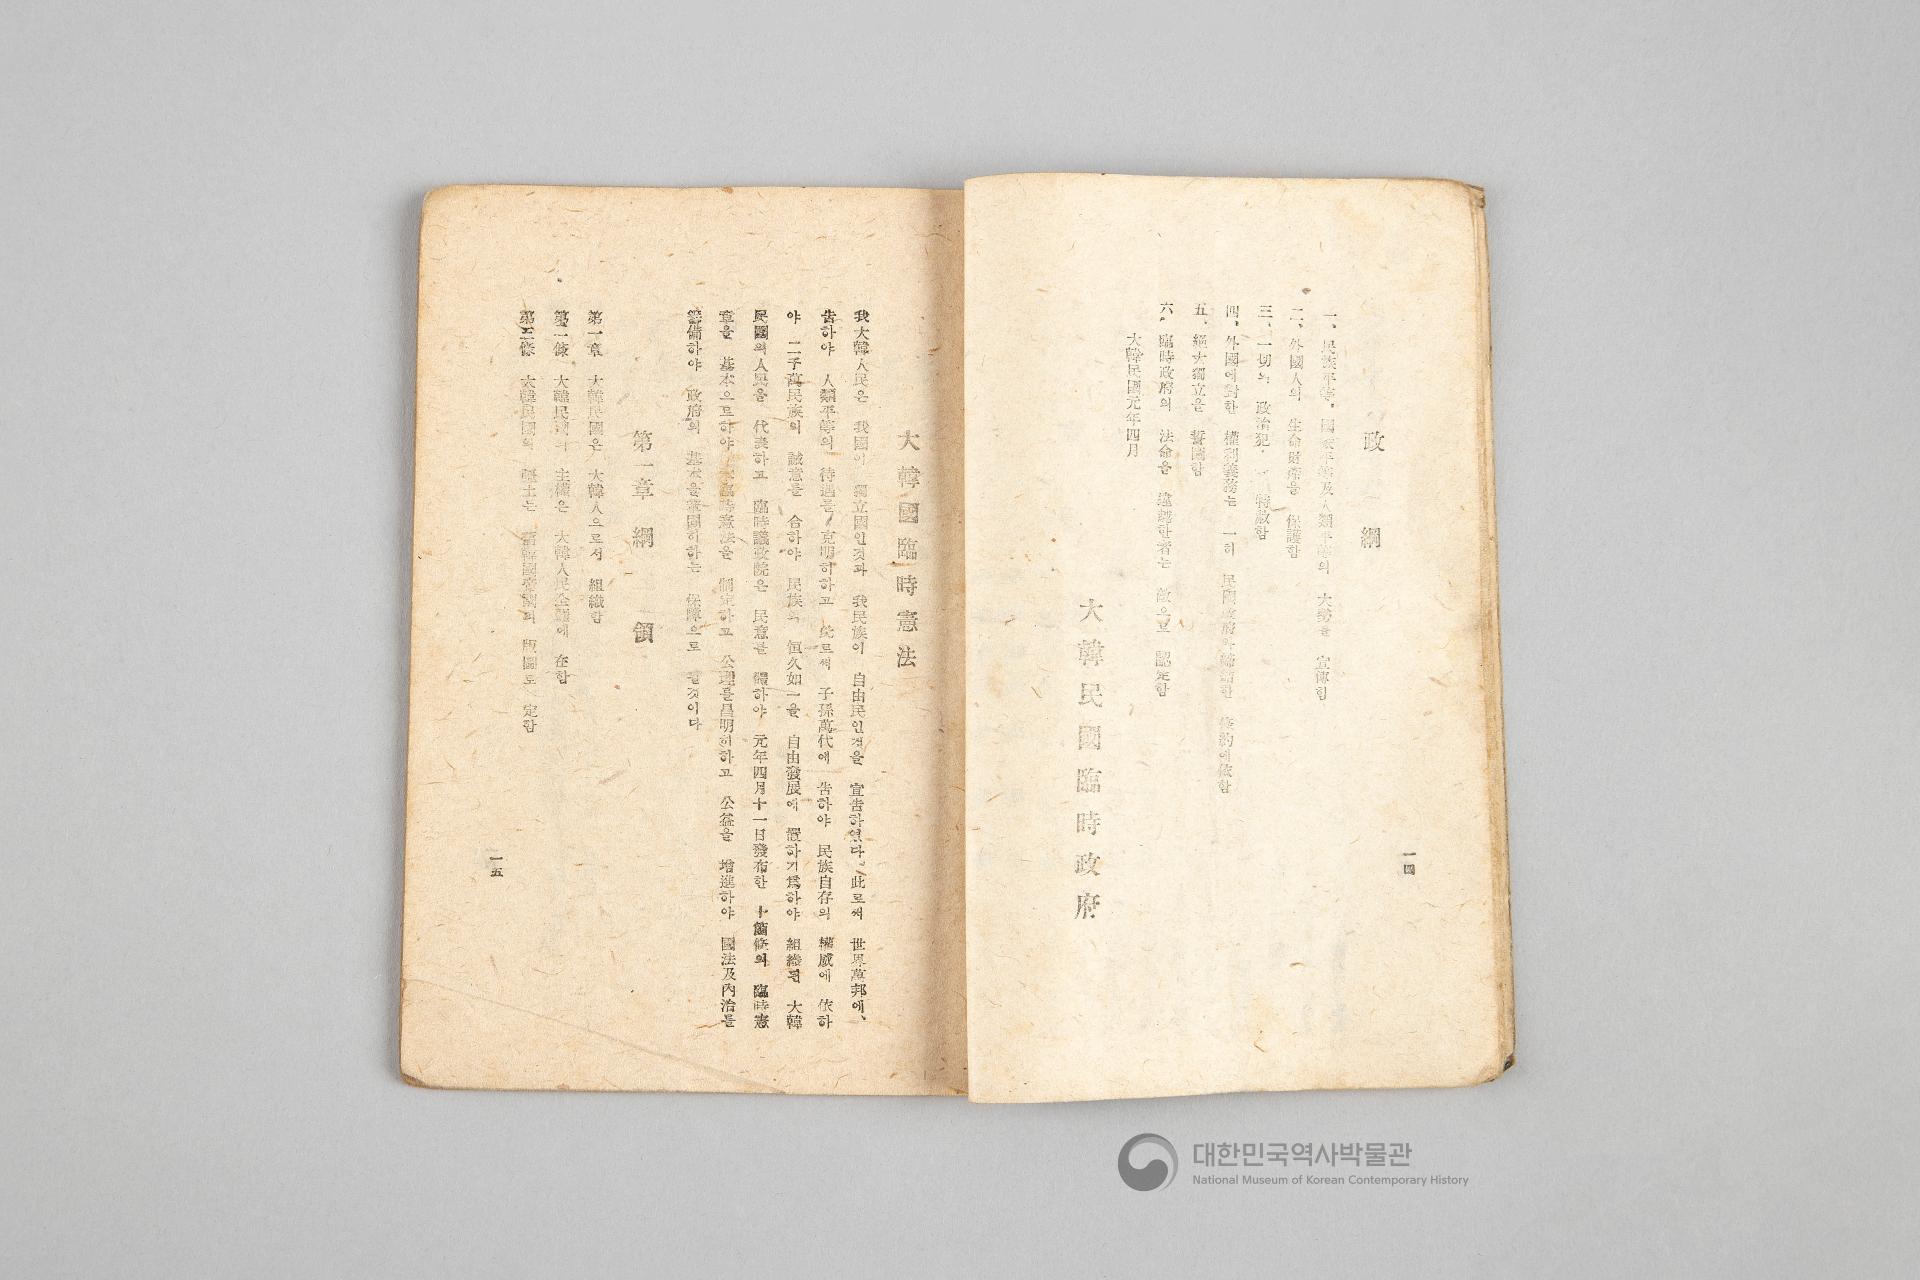 政綱
一、民族平等、國家平等及人類平等의 大勢를 宣傳함
二、外國人의 生命財産을 保護함
三、一切의 政治犯 特赦함
四、外國에對한 權利義務는 一히 民國政府와締結한 條約에依함
五、絶大獨立을 誓圖함
六、臨時政府의 法命을 違越한者는 敵으로 認定함
大韓民國元年四月
大韓民國臨時政府
一四
大韓國臨時憲法
我大韓人民은 我國이 獨立國인것과 我民族이 自由民인것을 宣告하였다。此로써 世界萬邦에、
告하야 人類平等의 待遇를 克明히하고 此로써 子孫萬代에 告하야 民族自存의 權威에 依하
야 二千萬民族의 誠意를 合하야 民族의 恒久如一을 自由發展에 置하기爲하야 組織된 大韓
民國의人民을 代表하고 臨時議政院은 民意를 體하야 元年四月十一日發布한 十個條의 臨時憲
章을 基本으로하야 本臨時憲法을 制定하고 公理를昌明히하고 公益을 增進하야 國法及內治를
籌備하야 政府의 基本을鞏固히하는 保障으로 될것이다
第一章 綱領
第一章 大韓民國은 大韓人으로서 組織함
第二條 大韓民國의 主權은 大韓人民全體에 在함
第三條 大韓民國의 疆土는 舊韓國帝國의 版圖로 定함
一五
대한민국역사박물관
National Museum of Korean Contemporary History